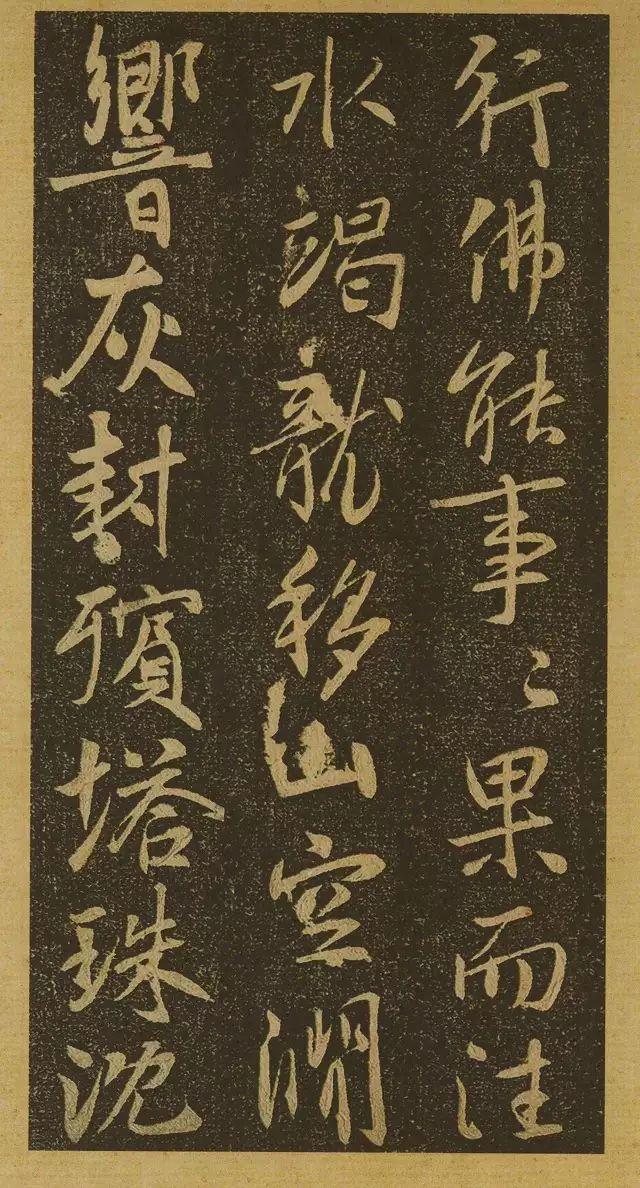 行佛能事=果而往
水竭龍移山空澗
響灰封殯塔珠沈